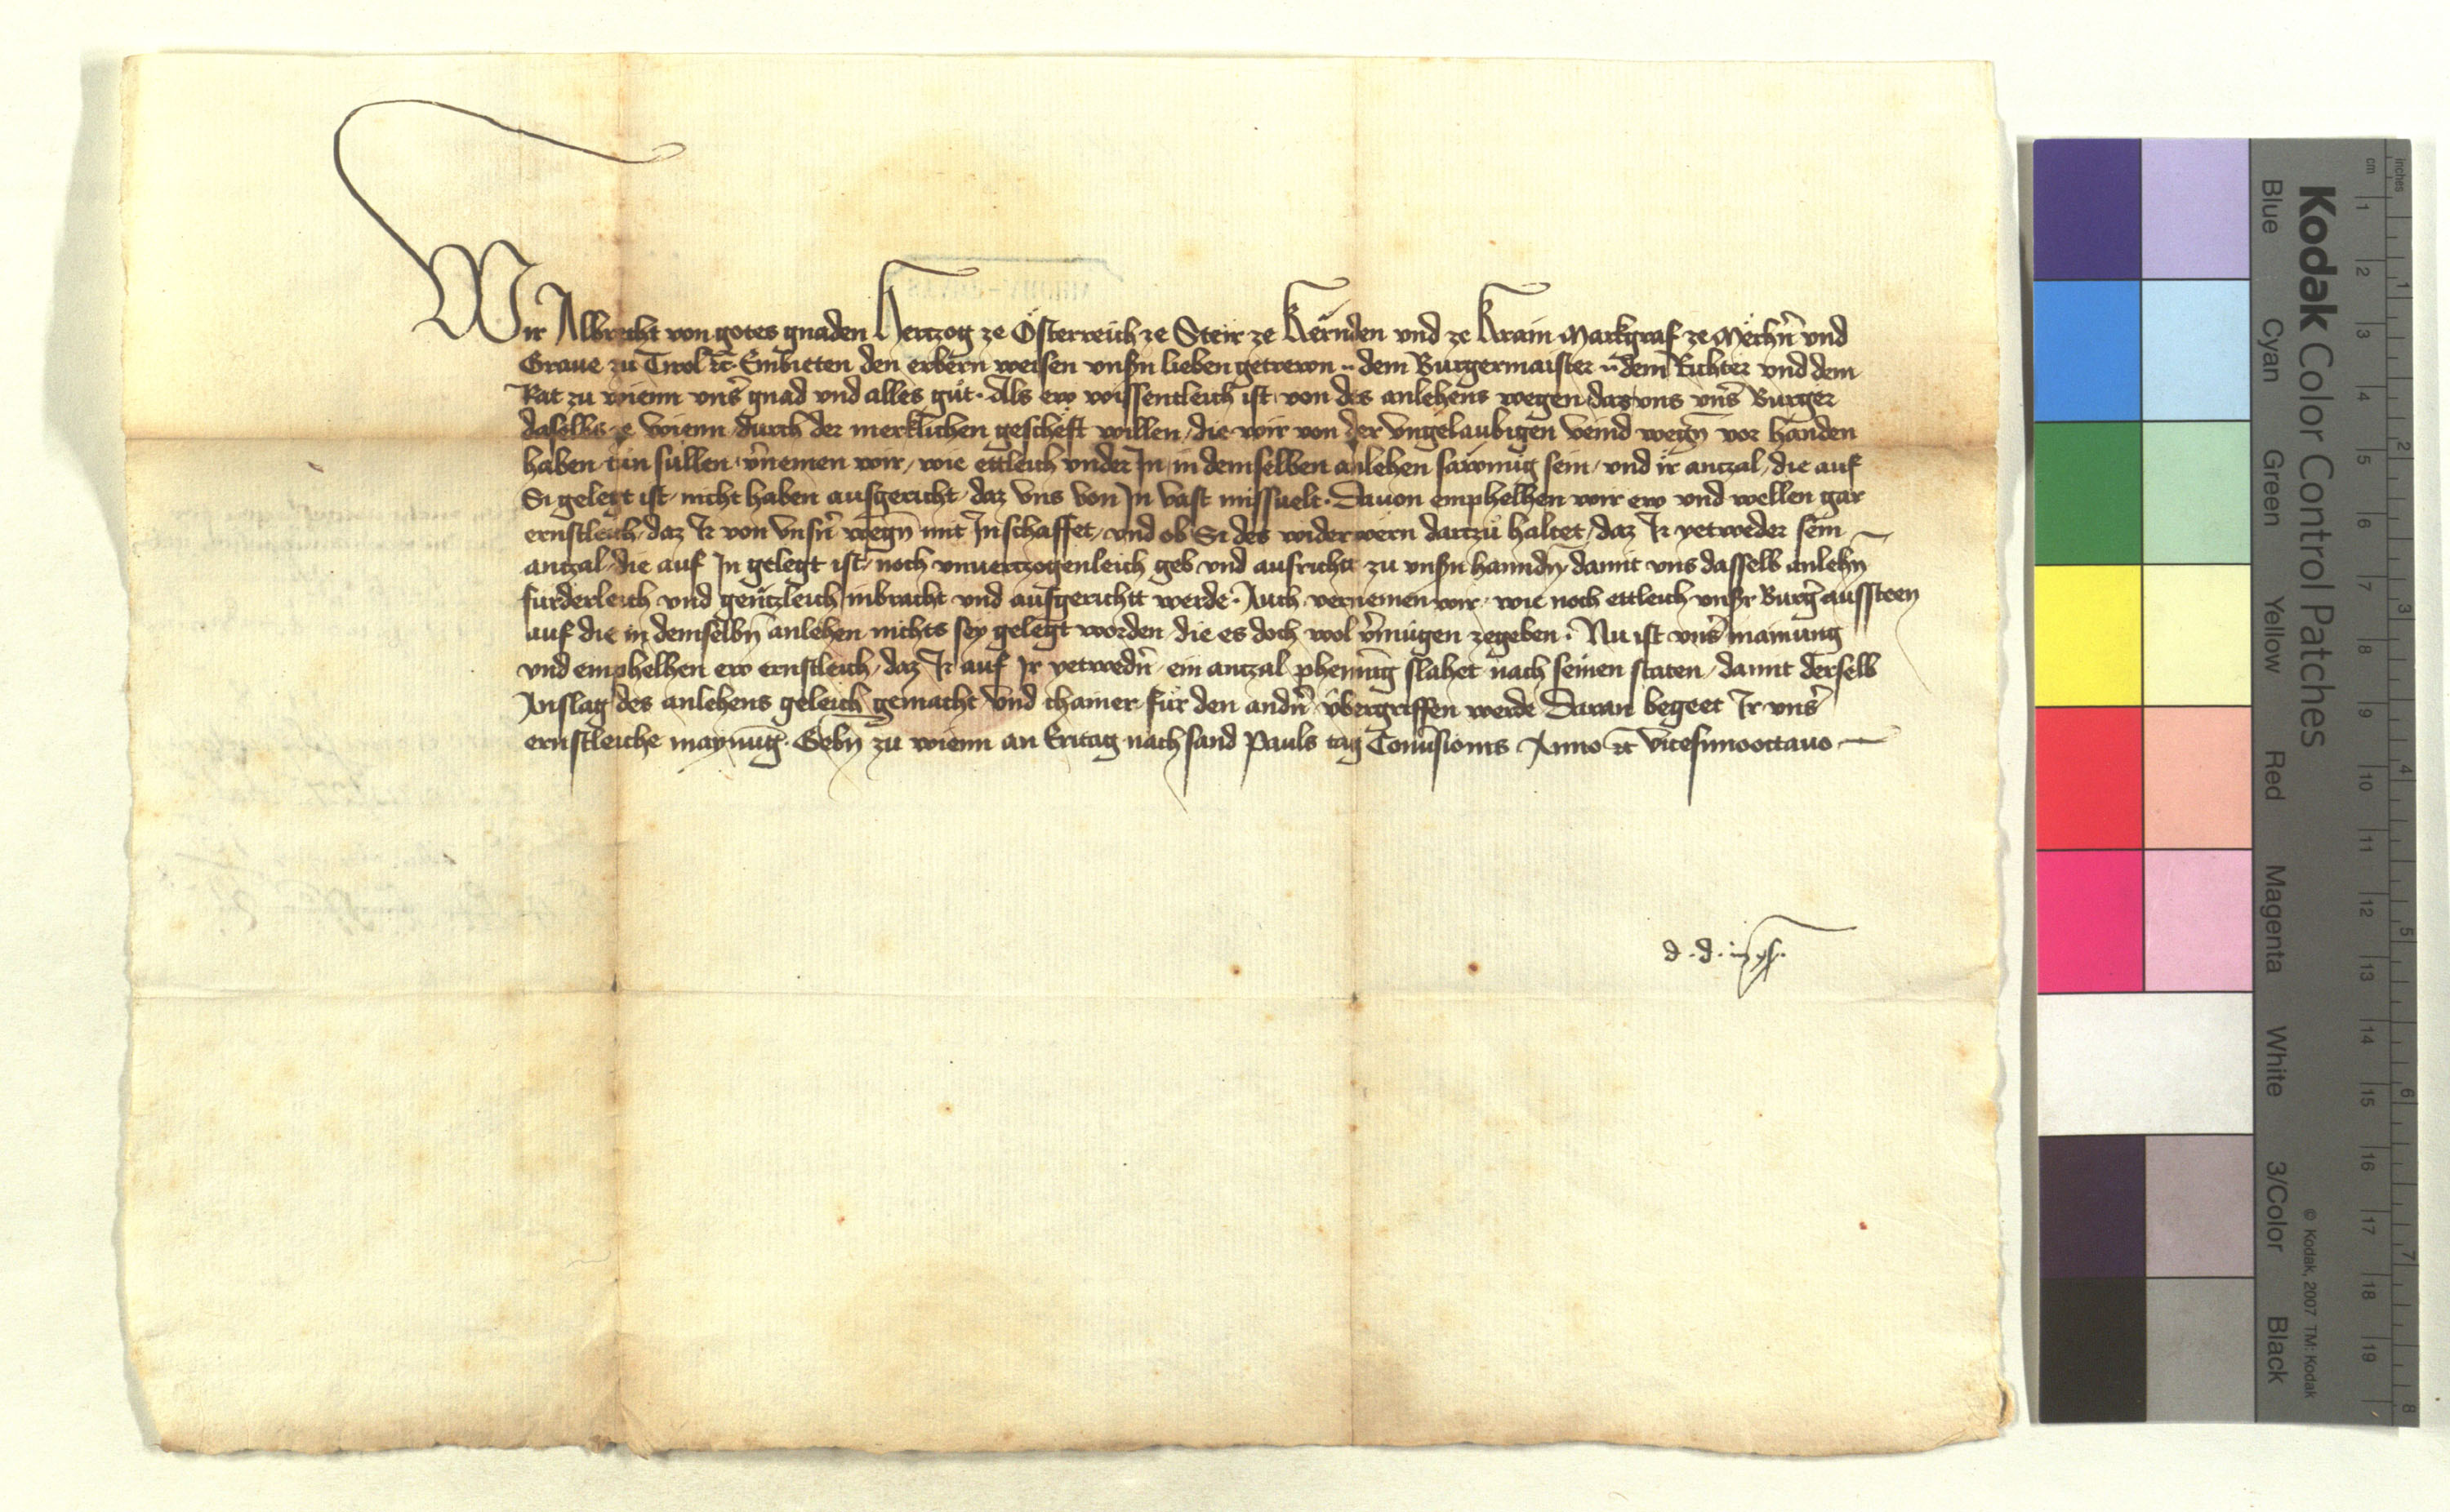 Wir Albrecht von gotes gnaden Hertzog ze Österreich ze Steir ze Kernden vnd ze Krain Markgraf ze Merhern̄ vnd
Graue zu Tirol ꝛc. Embieten den erbern weisen vnsn̄ lieben getrewn .. dem Burgermaister .. dem Richter vnd dem
Rat zu wienn vns̄ gnad vnd alles gůt. Als ew wissentleich ist von des anlehens wegen daz vns vns̄ Burger
daselbs ze wienn durch der merklichen geschefft willen, die wir von der vngelaubigen veind wegn̄ vor handen
haben tun sullen v̄nemen wir, wie ettleich vnder In in demselben anlehen sawmig sein, vnd ir anczal, die auf
Si gelegt ist, nicht haben ausgericht, daz vns von In vast missuelt. Dauon emphelhen wir ew vnd wellen gar
ernstleich, daz Ir von vnsn̄ wegn̄ mit In schaffet, vnd ob Si des wider wern dartzů haltet, daz Ir yetweder sein
anczal, die auf In gelegt ist, noch vnuertzogenleich geb vnd ausricht zu vnsn̄ hanndn̄, damit vns dasselb anlehn̄
furderleich vnd gentzleich inbracht vnd ausgericht werde. Auch vernemen wir, wie noch ettleich vnsr Burḡ aussteen
auf die in demselbn̄ anlehen nichts sey gelegt worden die es doch wol v̄mugen zegeben. Nu ist vns̄ mainung
vnd emphelhen ew ernstleich, daz Ir auf Ir yetwedn̄ ein anczal phening slahet nach seinen staten, damit derselb
Anslag des anlehens geleich gemacht vnd chainer für den andn̄ übergriffen werde Daran begeet Ir vns̄
ernstleiche maynūg. Gebn̄ zu wienn an Eritag nach sand Pauls tag Conūsionis Anno ꝛc vicesimooctauo
d. d. in